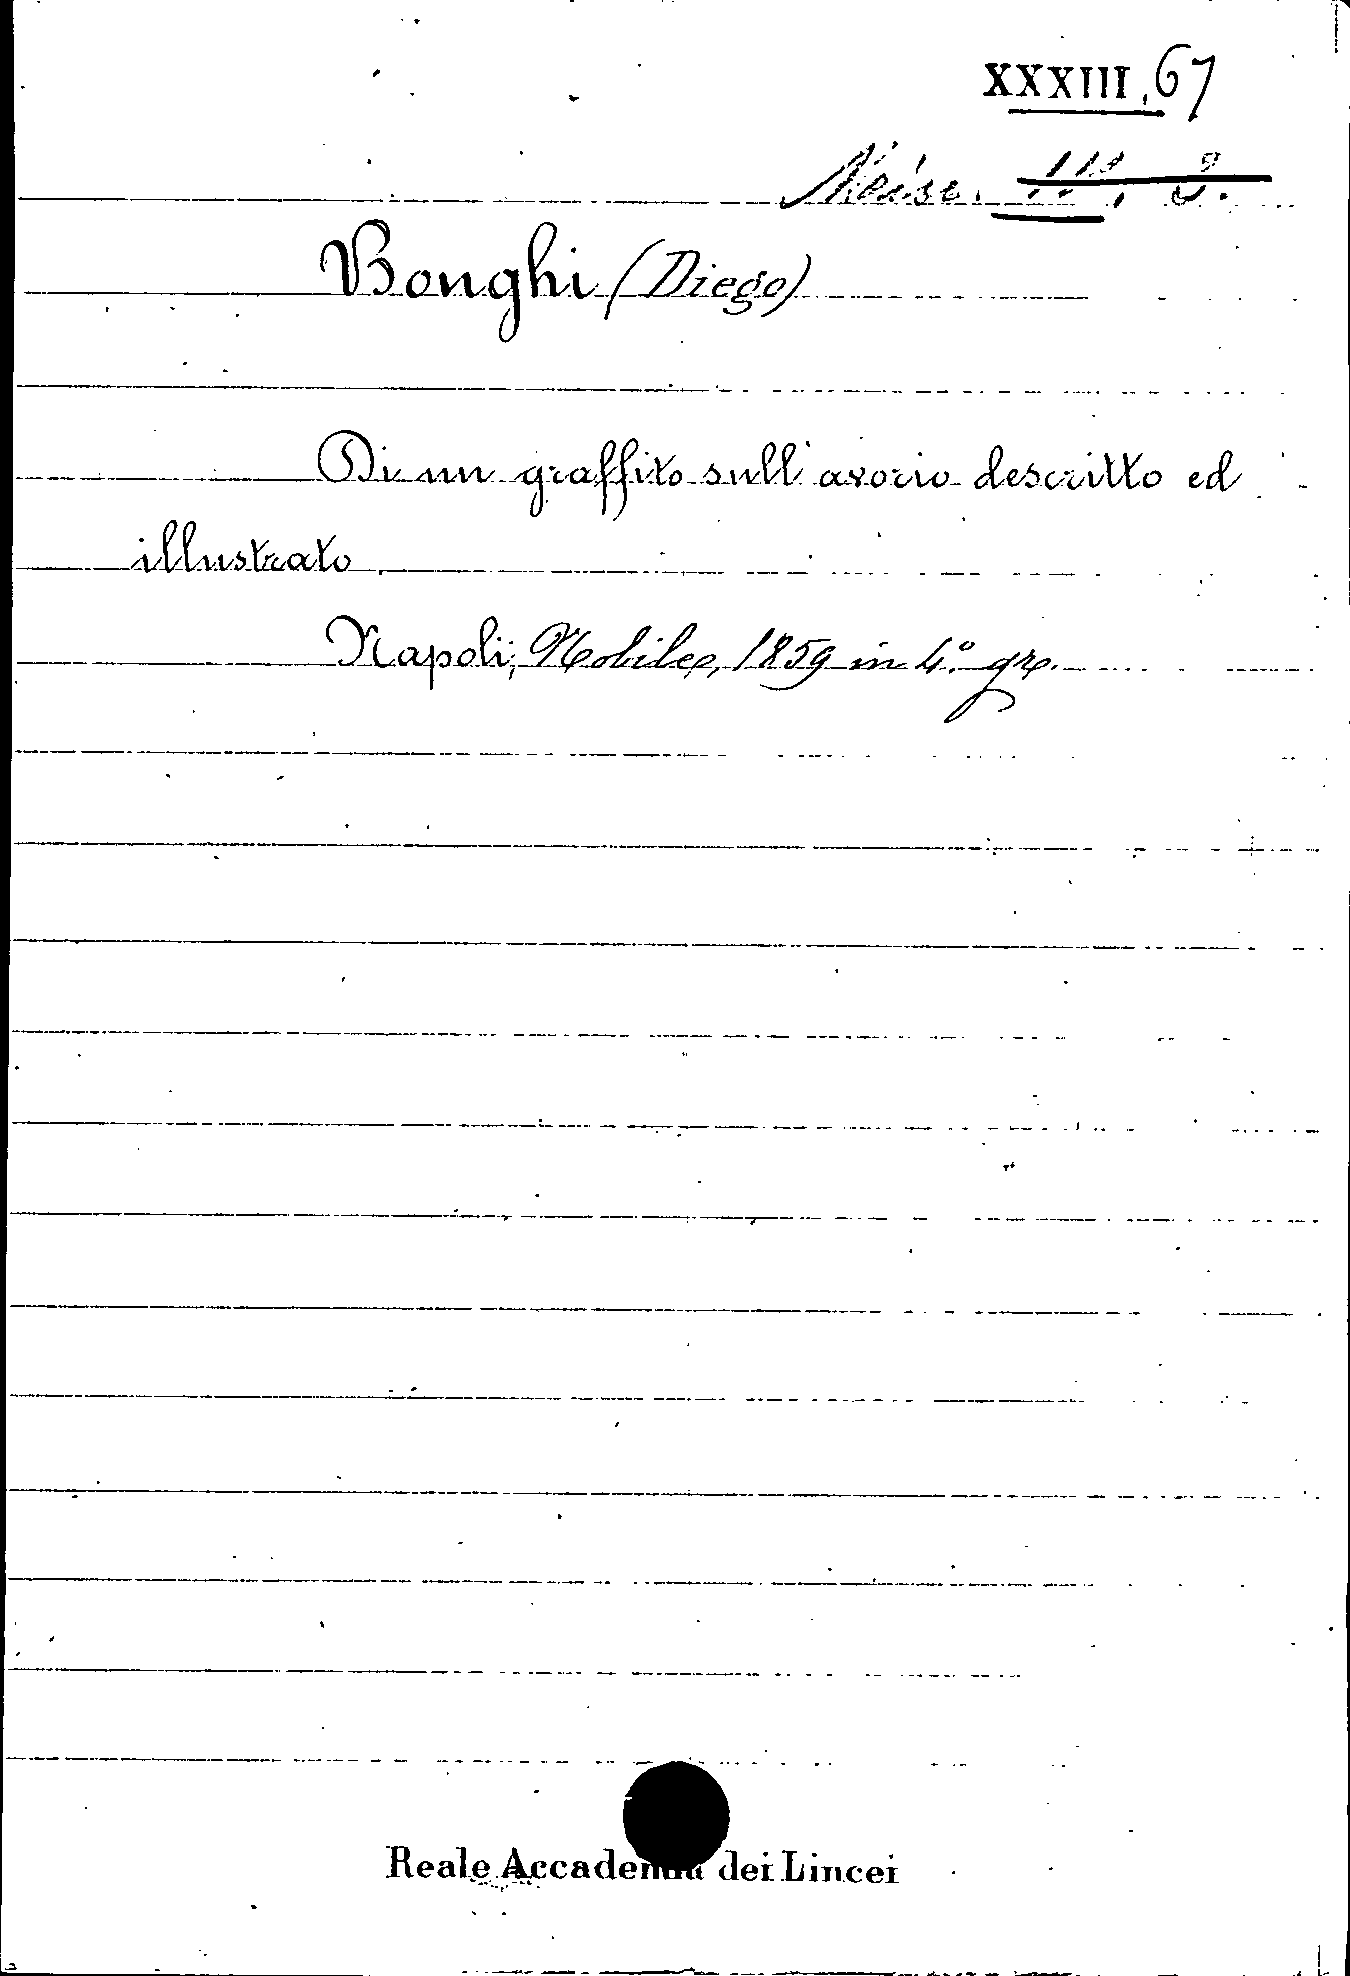 XXXIII, 67
Bonghi (Diego)
Di un graffito sull'avorio descritto ed
illustrato.
Napoli, Nobile, 1859 in 4.º gr.
Reale Accademia dei Lincei